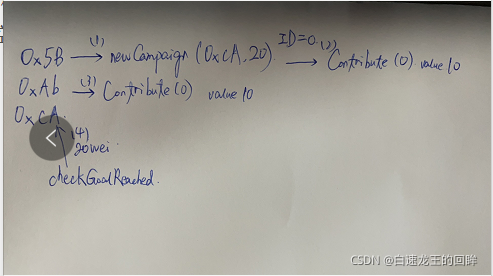 0x5B (1) newCampaign (0xCA, 20) ID=0 (2) Contribute (0) value 10
0xAb (3) Contribute (0) value 10
0xCA
(4)
20wei
checkGoalReached.
CSDN @白速龙王的回眸